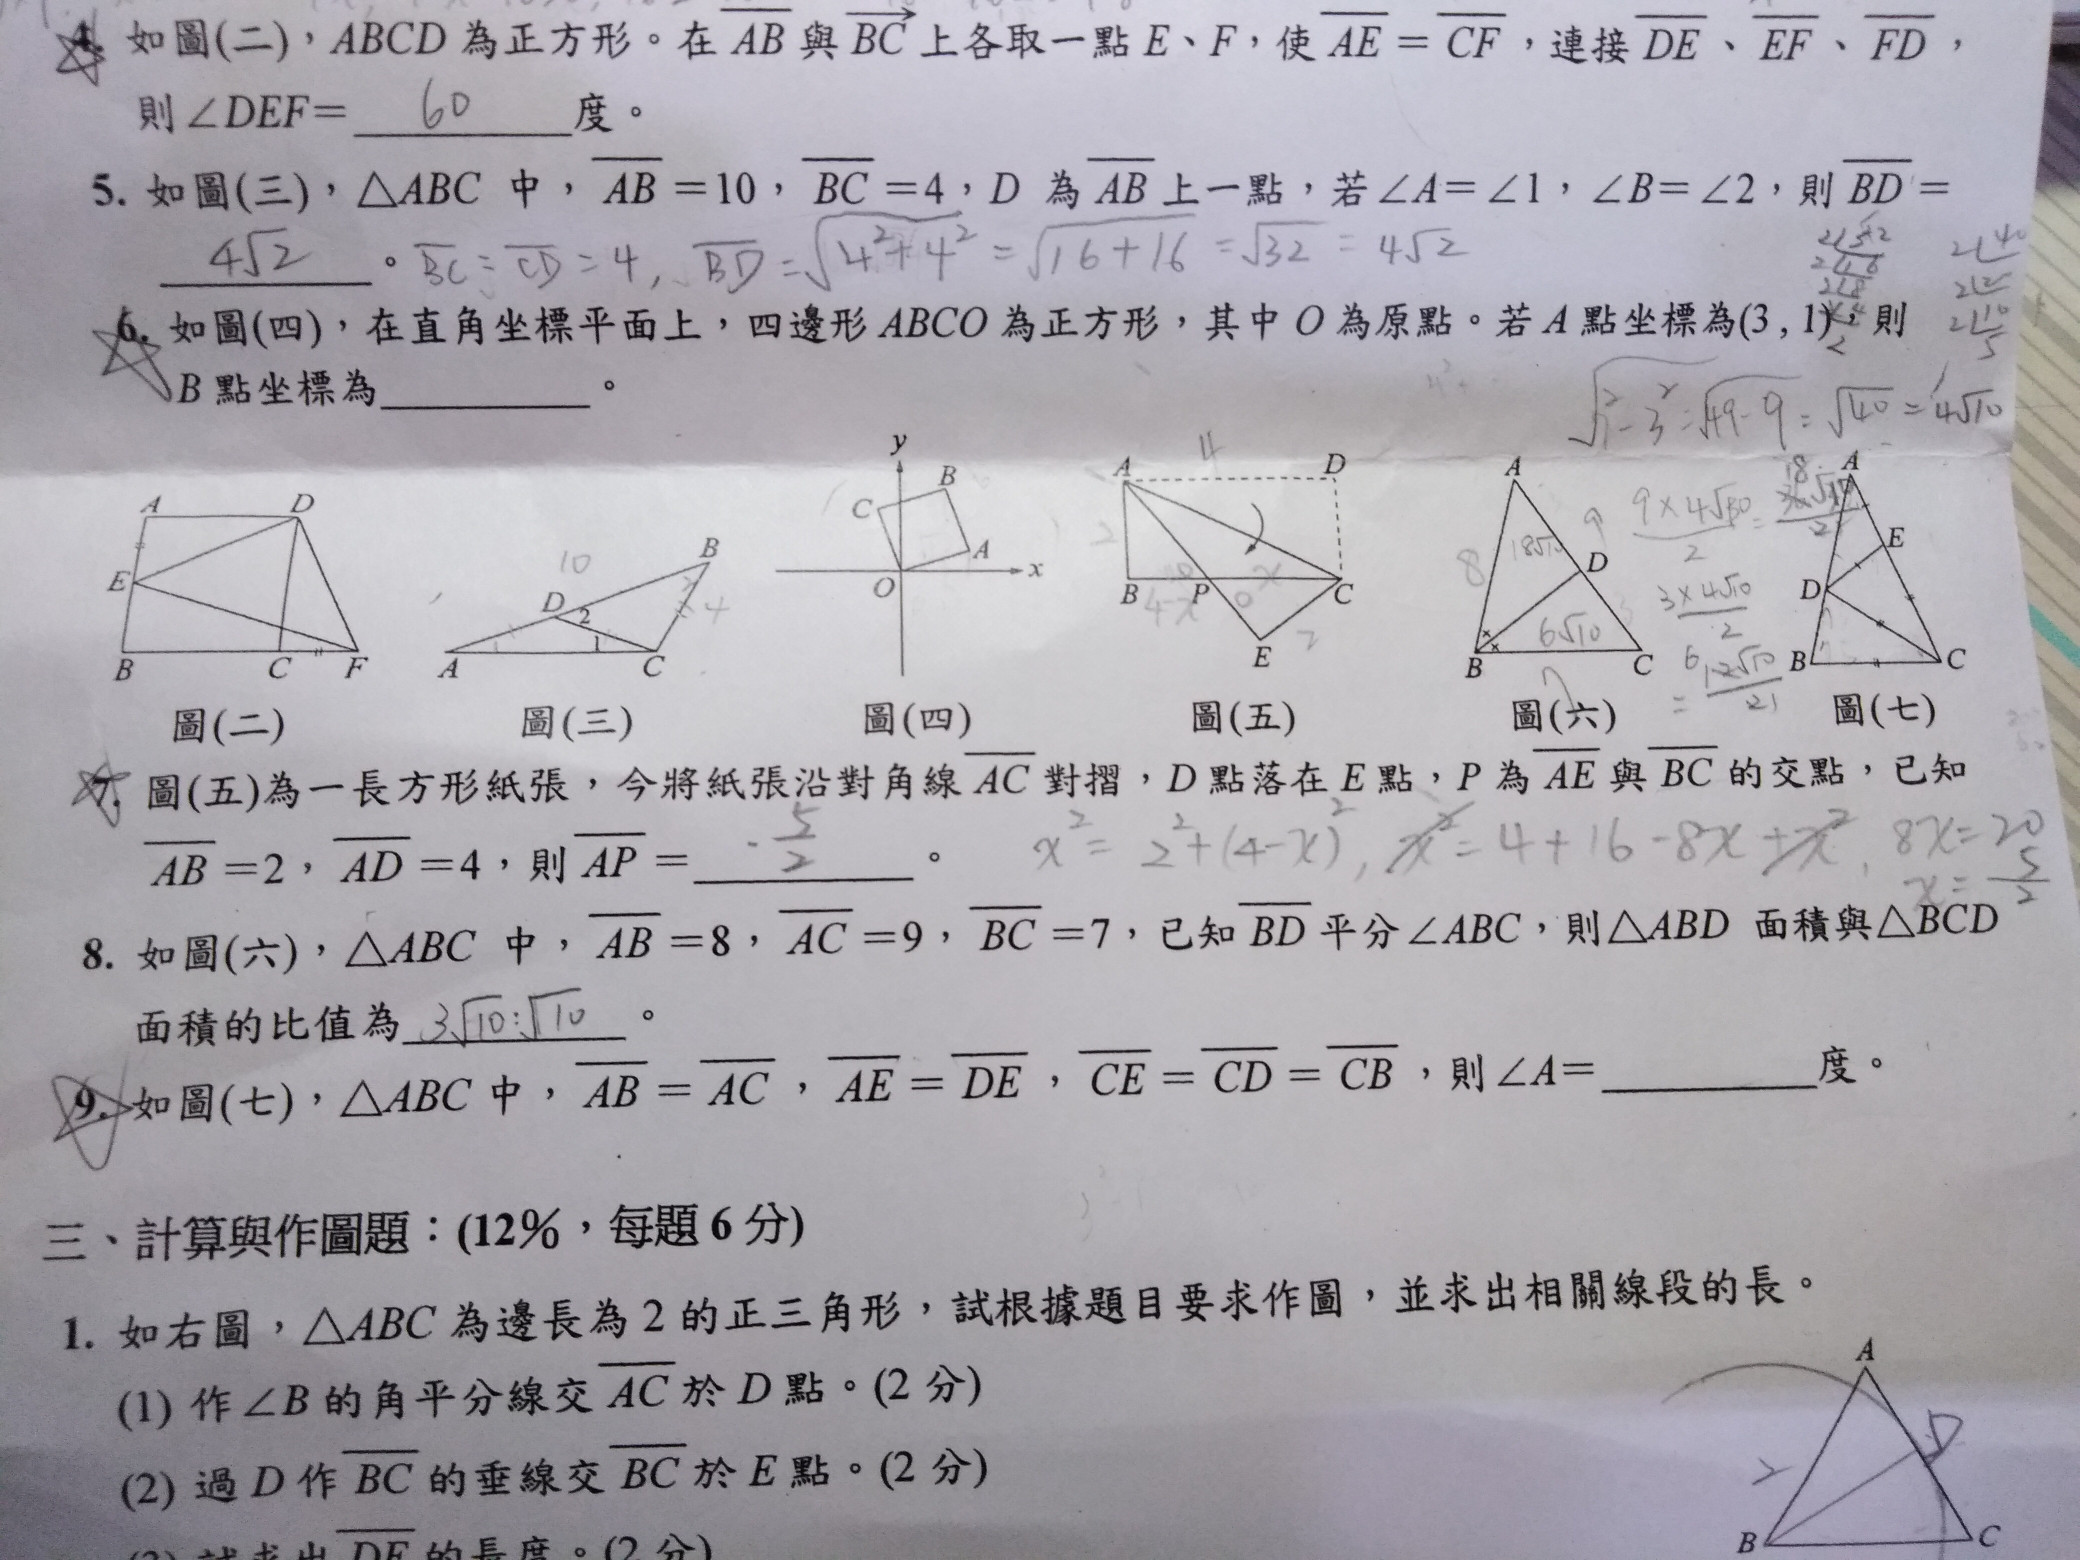 4. 如圖(二)，ABCD 為正方形。在 AB 與 BC 上各取一點 E、F，使 AE = CF，連接 DE、EF、FD，
則∠DEF= 60 度。
5. 如圖(三)，△ABC 中，AB =10，BC =4，D 為 AB 上一點，若∠A=∠1，∠B=∠2，則 BD =
4√2 。BC = CD = 4, BD = √4²+4² = √16+16 = √32 = 4√2
6. 如圖(四)，在直角坐標平面上，四邊形 ABCO 為正方形，其中 O 為原點。若 A 點坐標為(3 , 1)，則
B 點坐標為 。
√7²-3² = √49-9 = √40 = 4√10
A D E B C F
圖(二)
10 B D 2 4 A 1 C
圖(三)
y B C A O x
圖(四)
A 4 D 2 B P C 4-x x E 2
圖(五)
A 8 18√10 9 D 6√10 3 B C 7
圖(六)
9×4√10
2
3×4√10
2
A E D B C
圖(七)
7. 圖(五)為一長方形紙張，今將紙張沿對角線 AC 對摺，D 點落在 E 點，P 為 AE 與 BC 的交點，已知
AB =2，AD =4，則 AP = 5/2 。 x² = 2²+(4-x)², x² = 4+16-8x+x², 8x=20
x = 5/2
8. 如圖(六)，△ABC 中，AB =8，AC =9，BC =7，已知 BD 平分∠ABC，則△ABD 面積與△BCD
面積的比值為 3√10:√10 。
9. 如圖(七)，△ABC 中，AB = AC，AE = DE，CE = CD = CB，則∠A= 度。
三、計算與作圖題：(12%，每題 6 分)
1. 如右圖，△ABC 為邊長為 2 的正三角形，試根據題目要求作圖，並求出相關線段的長。
(1) 作∠B 的角平分線交 AC 於 D 點。(2 分)
(2) 過 D 作 BC 的垂線交 BC 於 E 點。(2 分)
(3) 試求出 DE 的長度。(2 分)
A D 2 B C